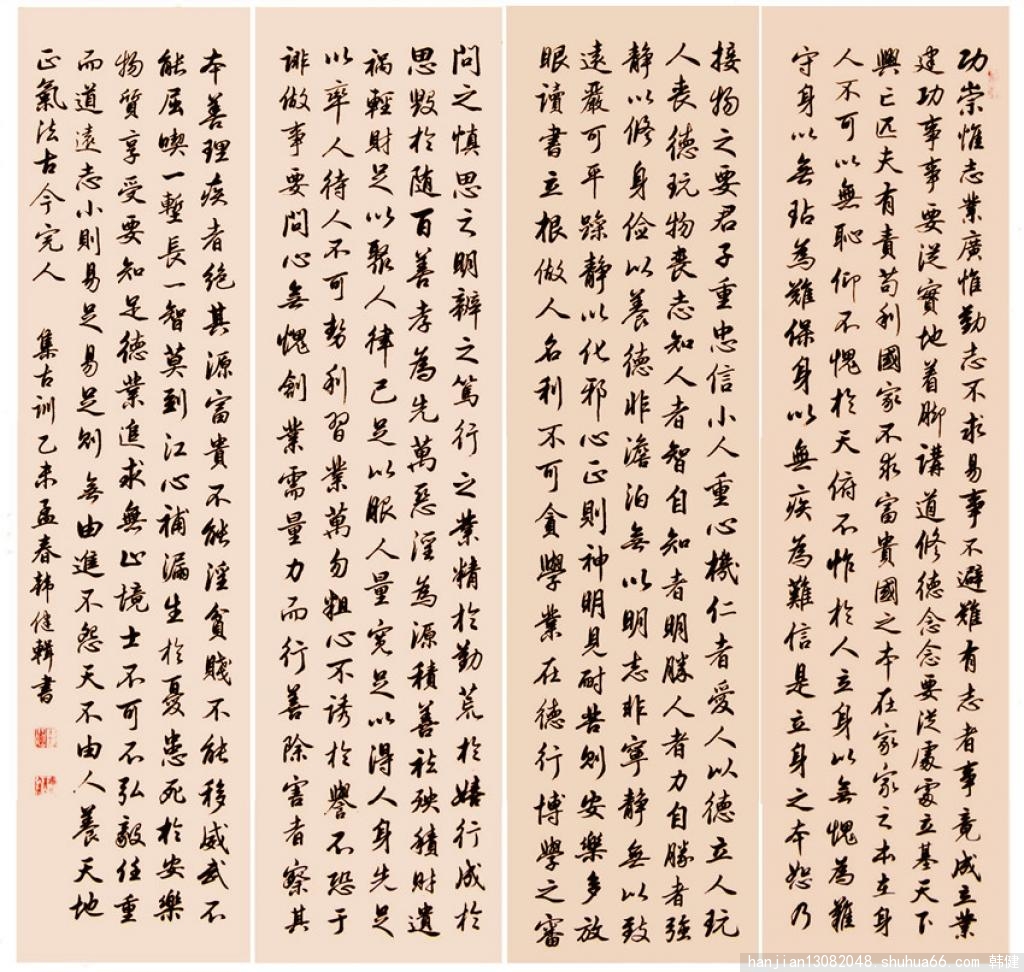 功崇惟志業廣惟勤志不求易事不避難有志者事竟成立業
建功事事要従實地着脚講道修德念念要従處處立基天下
興亡匹夫有責苟利國家不求富貴國之本在家家之本在身
人不可以無恥仰不愧於天俯不怍於人立身以無愧為難
守身以無玷為難保身以無疾為難信是立身之本恕乃
接物之要君子重忠信小人重心機仁者愛人以德立人玩
人丧德玩物喪志知人者智自知者明勝人者力自勝者強
静以修身儉以養德非澹泊無以明志非寧静無以致
遠嚴可平躁静以化邪心正則神明見耐苦則安樂多放
眼讀書立根做人名利不可貪學業在德行博學之審
問之慎思之明辨之篤行之業精於勤荒於嬉行成於
思毀於随百善孝為先萬惡淫為源積善祛殃積財遺
禍輕財足以聚人律己足以服人量寛足以得人身先足
以率人待人不可勢利習業萬勿粗心不誘於譽不恐于
誹做事要問心無愧創業需量力而行善除害者察其
本善理疾者绝其源富貴不能淫貧賤不能移威武不
能屈喫一塹長一智莫到江心補漏生於憂患死於安樂
物質享受要知足德業追求無止境士不可不弘毅任重
而道遠志小則易足易足則無由進不怨天不由人養天地
正氣法古今完人　集古訓乙未孟春韩健輯書
hanjian13082048 shuhua66.com 韩健